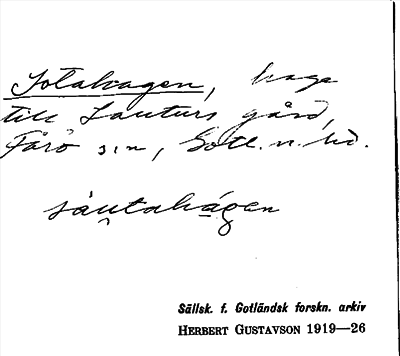 Sotahagen, hage
till Lauturs gård,
Fårö s:n, Gotl. n. hd.
såutahágen
Sällsk. f. Gotländsk forskn. arkiv
HERBERT GUSTAVSON 1919—26